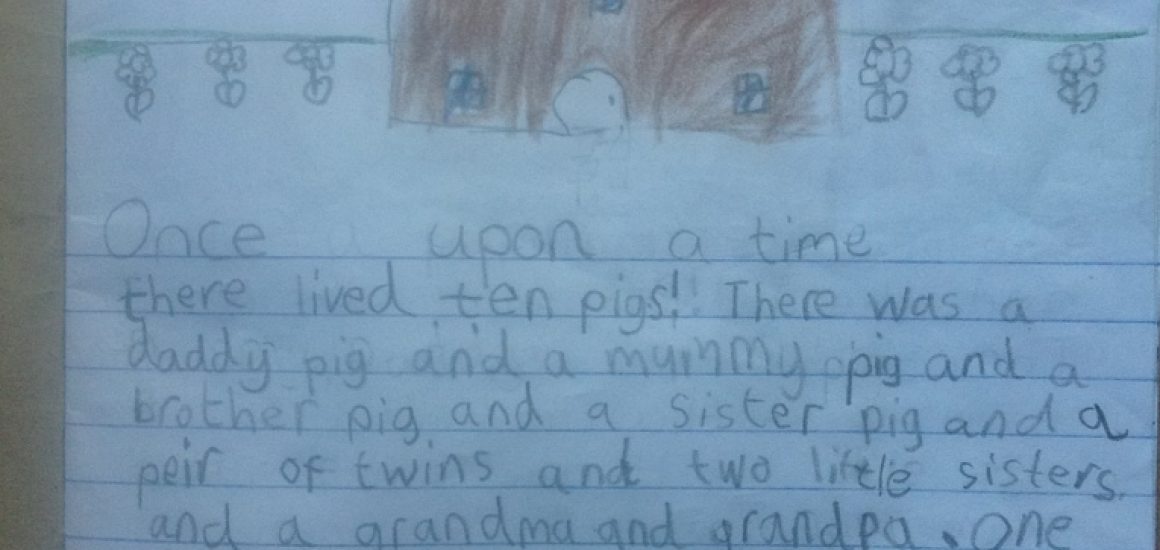 Once upon a time
there lived ten pigs! There was a
daddy pig and a mummy pig and a
brother pig and a sister pig and a
peir of twins and two little sisters.
and a grandma and grandpa. One